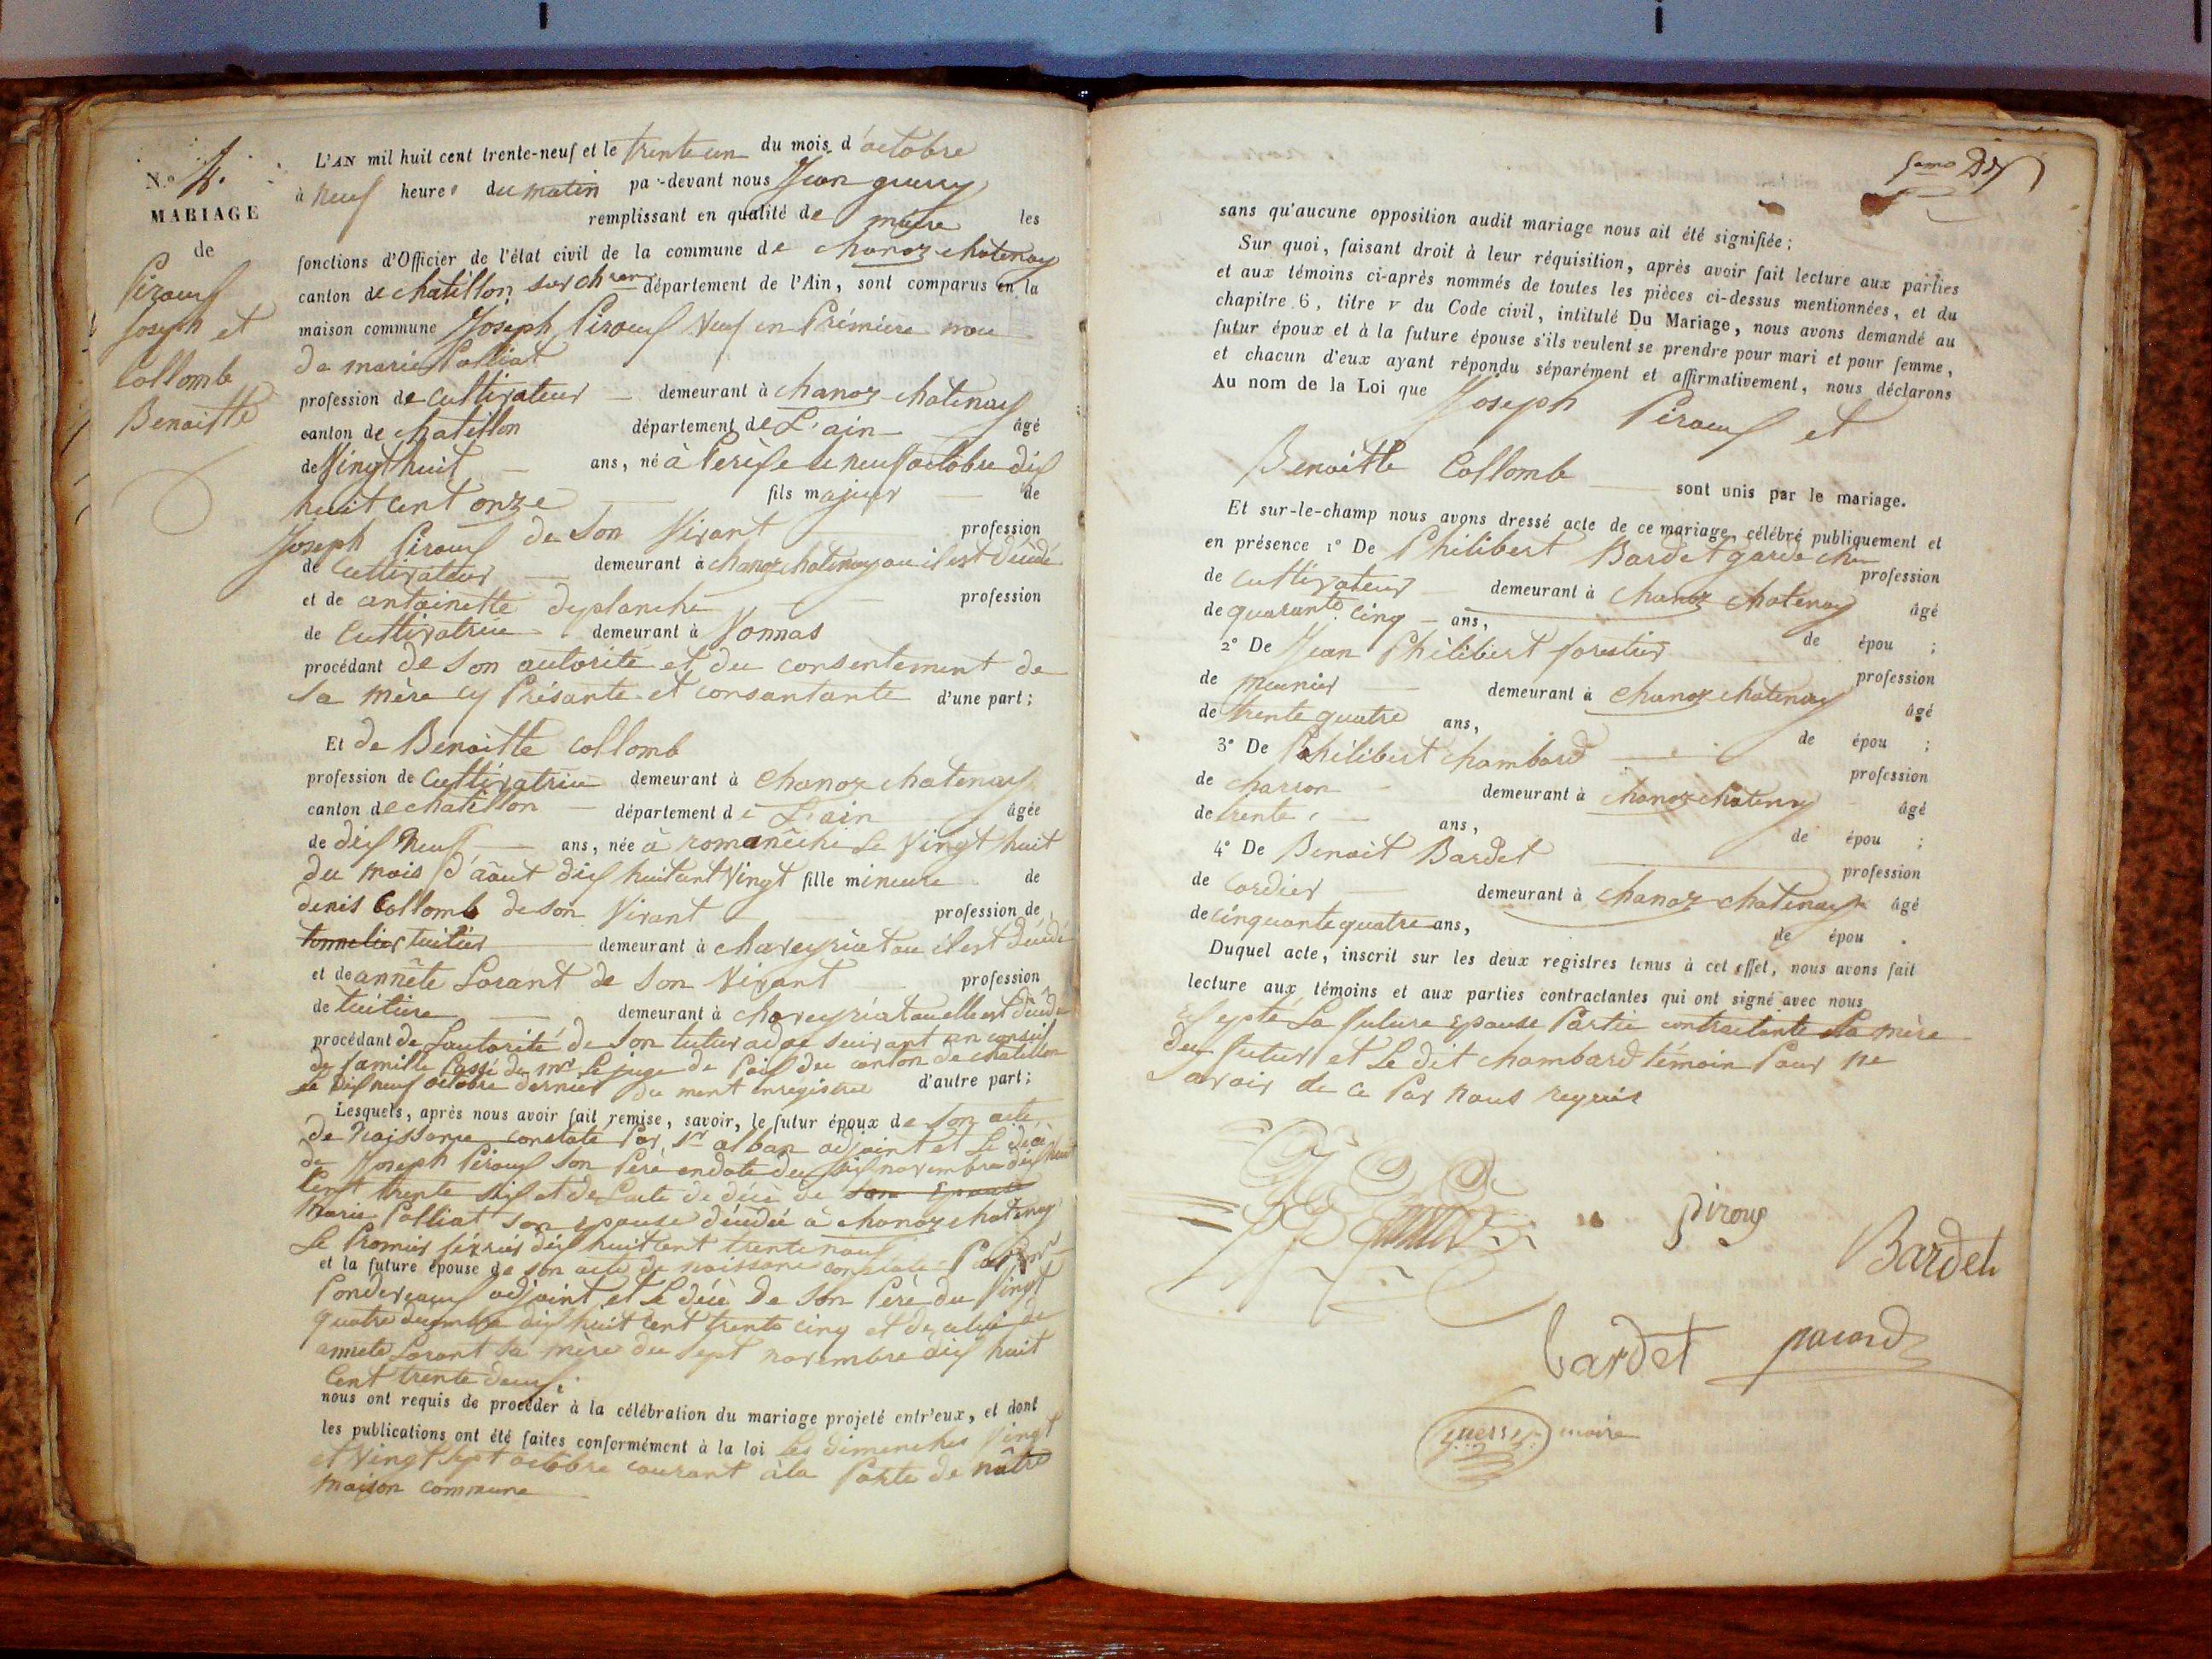 N.° 4.
MARIAGE
de
Piroux
Joseph et
Collomb
Benoitte
L'AN mil huit cent trente-neuf et le trente un du mois d'octobre
à neuf heures du matin par-devant nous Jean guerry
remplissant en qualité de maire les
fonctions d'Officier de l'état civil de la commune de chanoz chatenay
canton de chatillon sur ch département de l'Ain, sont comparus en la
maison commune Joseph Piroux Veuf en Prémière
de marie Palliat
profession de Cultivateur demeurant à chanoz chatenay
canton de chatillon département de L'ain âgé
de Vingt huit ans, né à le neuf octobre dix
huit cent onze fils majeur de
Joseph Piroux de son Vivant profession
de Cultivateur demeurant à chanoz chatenay ou il est décédé
et de antoinette deplanche profession
de Cultivatrice demeurant à Vonnas
procédant de son autorité et du consentement de
sa mère cy Présante et consantante d'une part;
Et de Benoitte Collomb
profession de Cultivatrice demeurant à Chanoz chatenay
canton de chatillon département de L'ain âgée
de dix neuf ans, née à romanêche le Vingt huit
du mois d'aôut dix huit cent Vingt fille mineure de
denis Collomb de son Vivant profession de
tonnelier tuilier demeurant à chaveyriat ou il est décédé
et de annête Lorant de son Vivant profession
de tuiliere demeurant à chaveyriat ou elle est décédé
procédant de L'autorité de son tuteur adoc suivant un conseil
de famille Passé du mr Le juge de Paix du canton de chatillon
le dix neuf octobre dernier du ment enregistrée d'autre part;
Lesquels, après nous avoir fait remise, savoir, le futur époux de son acte
de Naissance constate Par Sr alban adjoint et Le décé
de Joseph Piroux son Père en date du six novembre dix huit
Cent trente six et de L'acte de décè de son Epouse
Marie Palliat son epouse décédée à chanoz chatenay
Le Premier février dix huit cent trente neuf
et la future épouse de son acte de naissance constate Par mr
Pondevaux adjoint et Le décè De son Père du Vingt
quatre decembre dix huit cent trente cinq et de celui de
annete Lorant sa mère du sept novembre dix huit
Cent trente deux;
nous ont requis de procéder à la célébration du mariage projeté entr'eux, et dont
les publications ont été faites conformément à la loi Les dimenches Vingt
et Vingt sept octobre courant à la Porte de nôtre
maison commune
sans qu'aucune opposition audit mariage nous ait été signifiée;
Sur quoi, faisant droit à leur réquisition, après avoir fait lecture aux parties
et aux témoins ci-après nommés de toutes les pièces ci-dessus mentionnées, et du
chapitre 6, titre V du Code civil, intitulé Du Mariage, nous avons demandé au
futur époux et à la future épouse s'ils veulent se prendre pour mari et pour femme,
et chacun d'eux ayant répondu séparément et affirmativement, nous déclarons
Au nom de la Loi que Joseph Piroux et
Benoitte Collomb sont unis par le mariage.
Et sur-le-champ nous avons dressé acte de ce mariage, célébré publiquement et
en présence 1° De Philibert Bardet garde profession
de Cultivateur demeurant à Chanoz chatenay âgé
de quarante cinq ans, de épou ;
2° De Jean Philibert forestier profession
de meunier demeurant à chanoz chatenay âgé
de trente quatre ans, de épou ;
3° De Philibert chambard profession
de charron demeurant à chanoz chatenay âgé
de trente ans, de épou ;
4° De Benoit Bardet profession
de Cordier demeurant à chanoz chatenay âgé
de cinquante quatre ans, de épou .
Duquel acte, inscrit sur les deux registres tenus à cet effet, nous avons fait
lecture aux témoins et aux parties contractantes qui ont signé avec nous
Excepté La future epouse Partie contractante La mère
du futur et Le dit chambard témoin Pour ne
savoir de ce Par nous requis
piroux
Bardet
bardet pacard
guerry maire